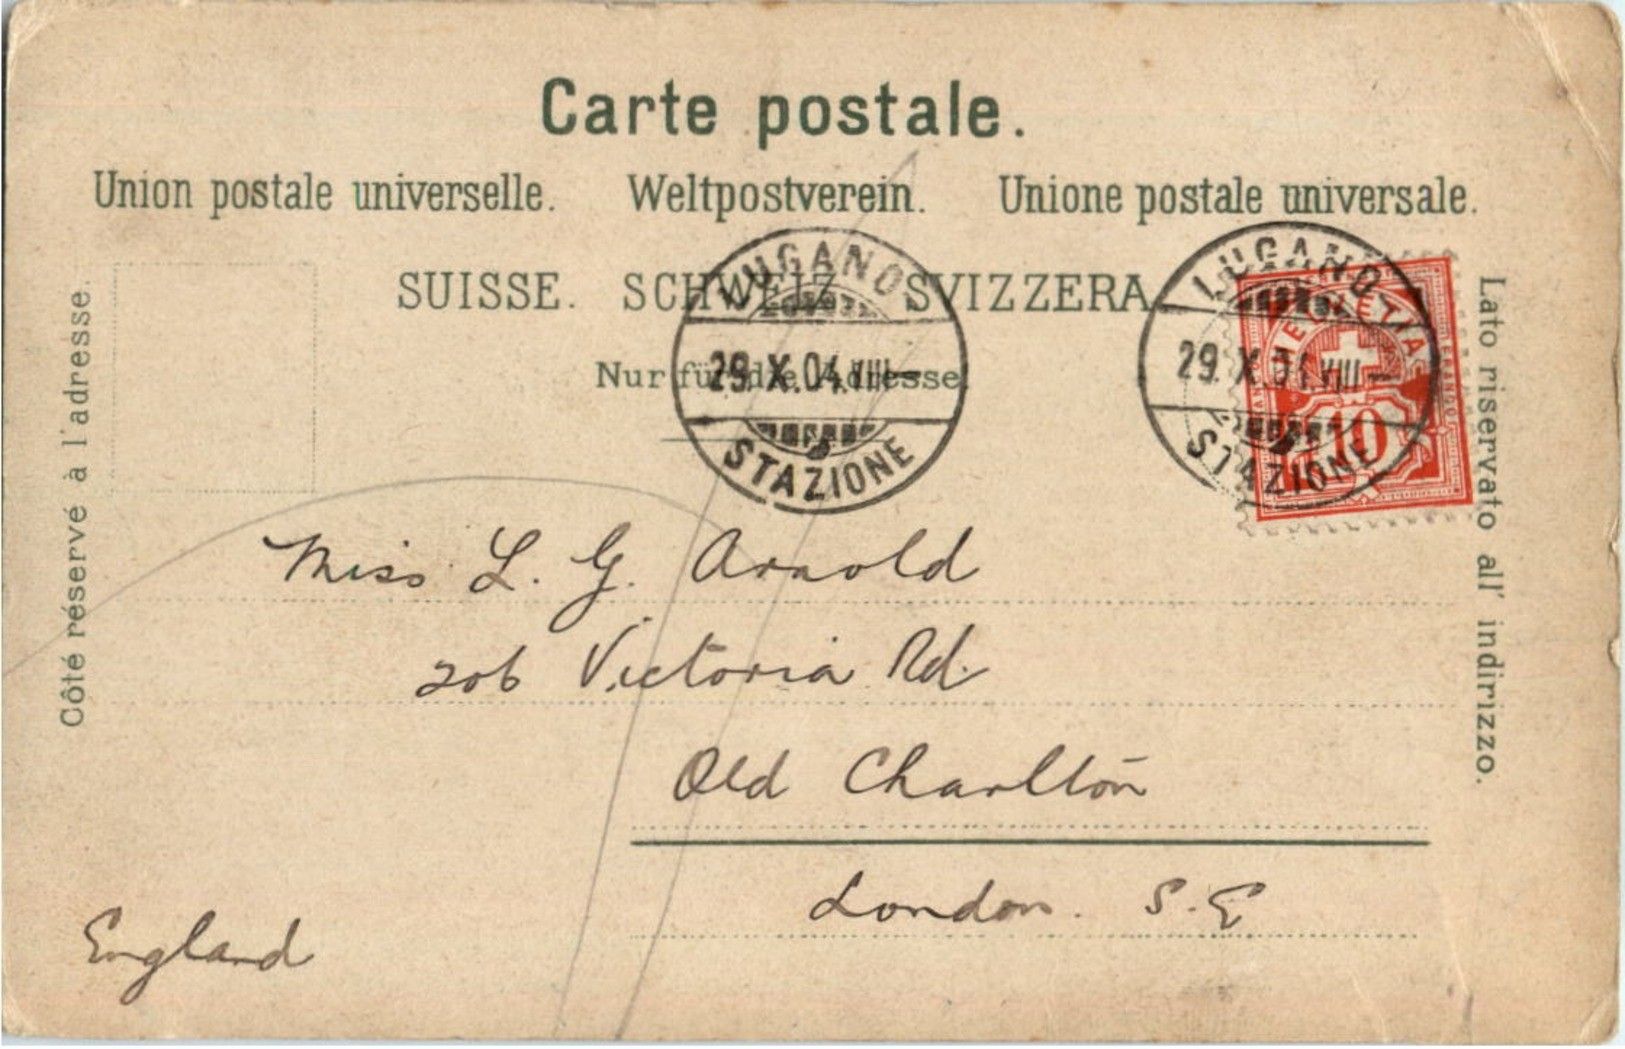 Carte postale.
Union postale universelle. Weltpostverein. Unione postale universale.
SUISSE. SCHWEIZ. SVIZZERA.
Nur für die Adresse.
Côté réservé à l'adresse.
Lato riservato all' indirizzo.
LUGANO
29.X.04.VIII-
STAZIONE
LUGANO
29.X.04.VIII-
STAZIONE
HELVETIA
FRANCO
10
Miss L. G. Arnold
206 Victoria Rd.
Old Charlton
London. S.E
England